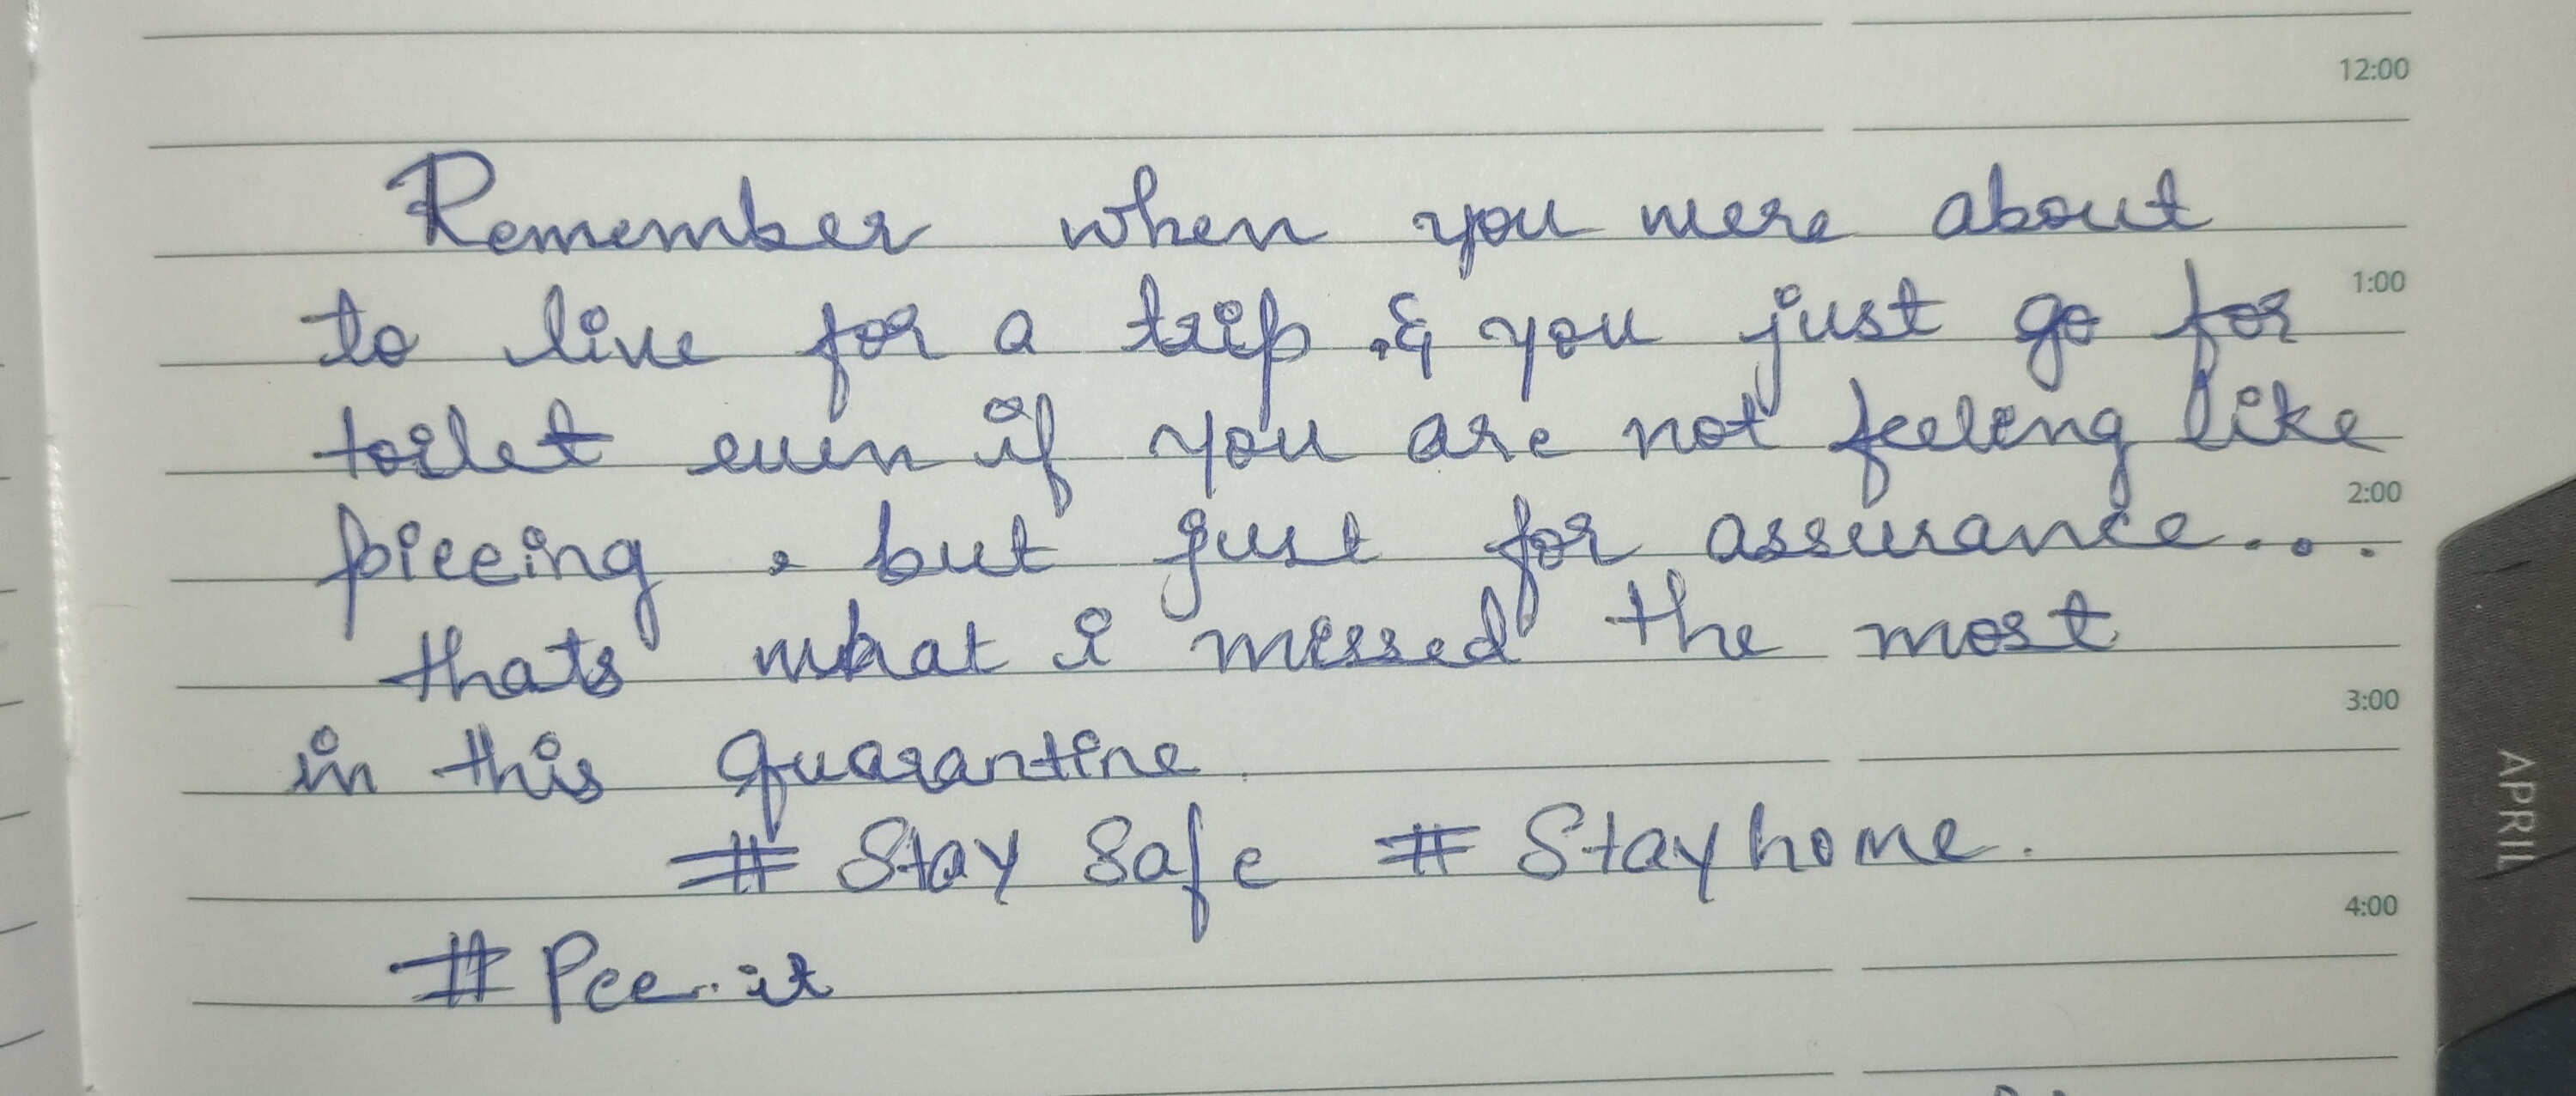 12:00
Remember when you were about
1:00
to live for a trip . & you just go for
toilet even if you are not feeling like
2:00
pieeing , but just for assurance...
thats what i missed the most
3:00
in this quarantine.
# Stay Safe # Stay home.
4:00
# Pee.it
APRIL